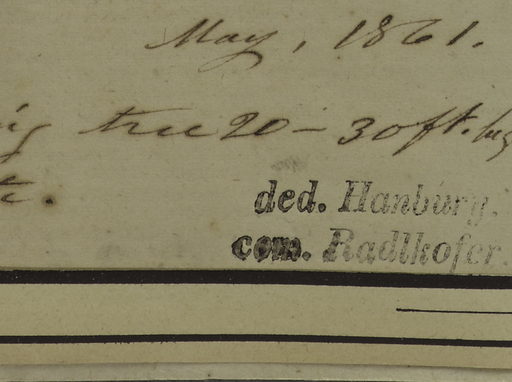 May, 1861.
tree 20-30 ft.
ded. Hanbury.
com. Radlkofer.